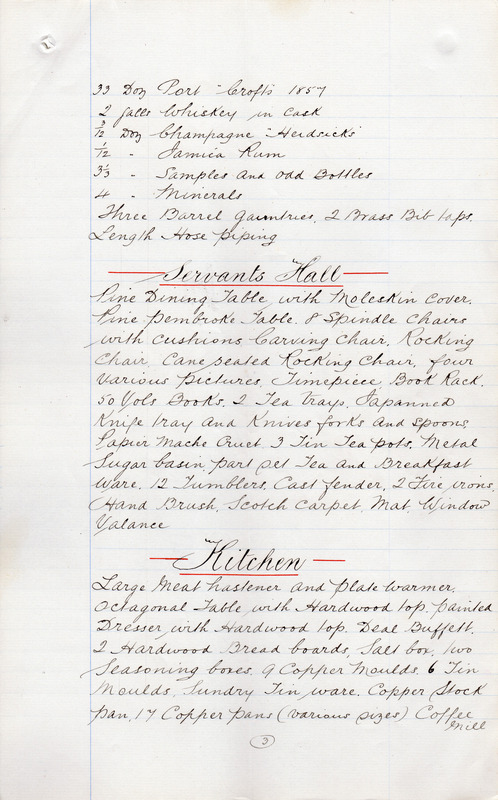 33 Doz Port "Crofts 1857
2 galls Whiskey in cask
3/12 Doz Champagne "Heidsicks"
1/12 " Jamica Rum
3 1/3 " Samples and odd Bottles
4 " Minerals
Three Barrel Gauntries. 2 Brass Bib taps.
Length Hose piping
Servants Hall
Pine Dining Table with Moleskin cover.
Pine Pembroke Table. 8 Spindle Chairs
with cushions Carving Chair. Rocking
Chair. Cane seated Rocking Chair. four
various pictures. Timepiece. Book Rack.
50 Vols Books. 2 Tea trays. Japanned
Knife tray and Knives forks and spoons
Papier Mache Cruet. 3 Tin Tea pots. Metal
Sugar basin. part set Tea and Breakfast
Ware. 12 Tumblers. Cast fender. 2 Fire irons.
Hand Brush. Scotch Carpet. Mat. Window
Valance
Kitchen
Large Meat hastener and plate warmer.
Octagonal Table with Hardwood top. painted
Dresser with Hardwood top. Deal Buffett.
2 Hardwood Bread boards, Salt box, two
Seasoning boxes. 9 Copper Moulds. 6 Tin
Moulds, Sundry Tin ware. Copper Stock
pan. 17 Copper pans (various sizes) Coffee
Mill
3